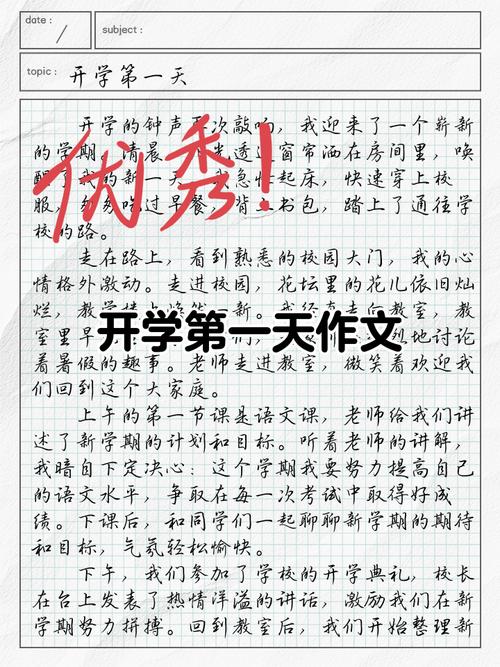 date：
subject：
topic： 开学第一天
开学的钟声再次敲响，我迎来了一个崭新
的学期。清晨，阳光透过窗帘洒在房间里，唤
醒了我的新一天。我急忙起床，快速穿上校
服，匆匆吃过早餐，背上书包，踏上了通往学
校的路。
优秀！
走在路上，看到熟悉的校园大门，我的心
情格外激动。走进校园，花坛里的花儿依旧灿
烂，教学楼焕然一新。我径直走向教室，教
开学第一天作文
室里早 们， 烈地讨论
着暑假的趣事。老师走进教室，微笑着欢迎我
们回到这个大家庭。
上午的第一节课是语文课，老师给我们讲
述了新学期的计划和目标。听着老师的讲解，
我暗自下定决心：这个学期我要努力提高自己
的语文水平，争取在每一次考试中取得好成
绩。下课后，和同学们一起聊聊新学期的期待
和目标，气氛轻松愉快。
下午，我们参加了学校的开学典礼，校长
在台上发表了热情洋溢的讲话，激励我们在新
学期努力拼搏。回到教室后，我们开始整理新